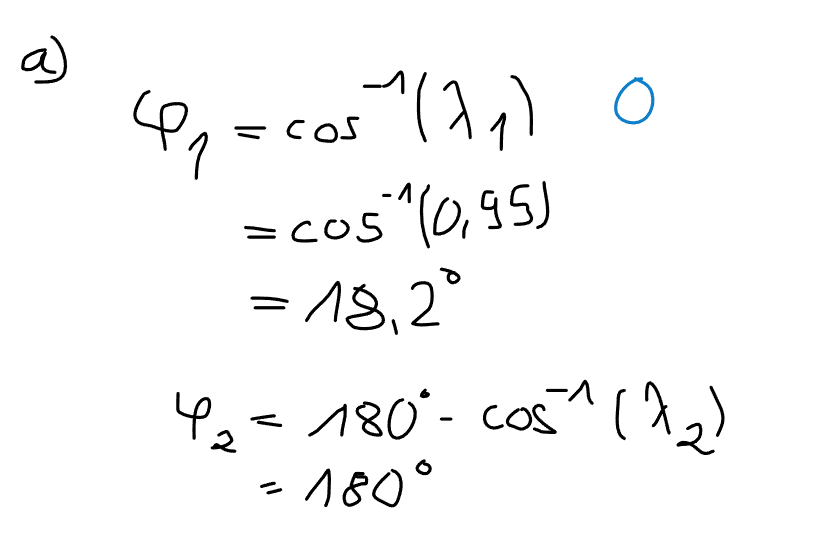 a)
φ₁ = cos⁻¹(λ₁) O
= cos⁻¹(0,95)
= 18,2°
φ₂ = 180° - cos⁻¹(λ₂)
= 180°